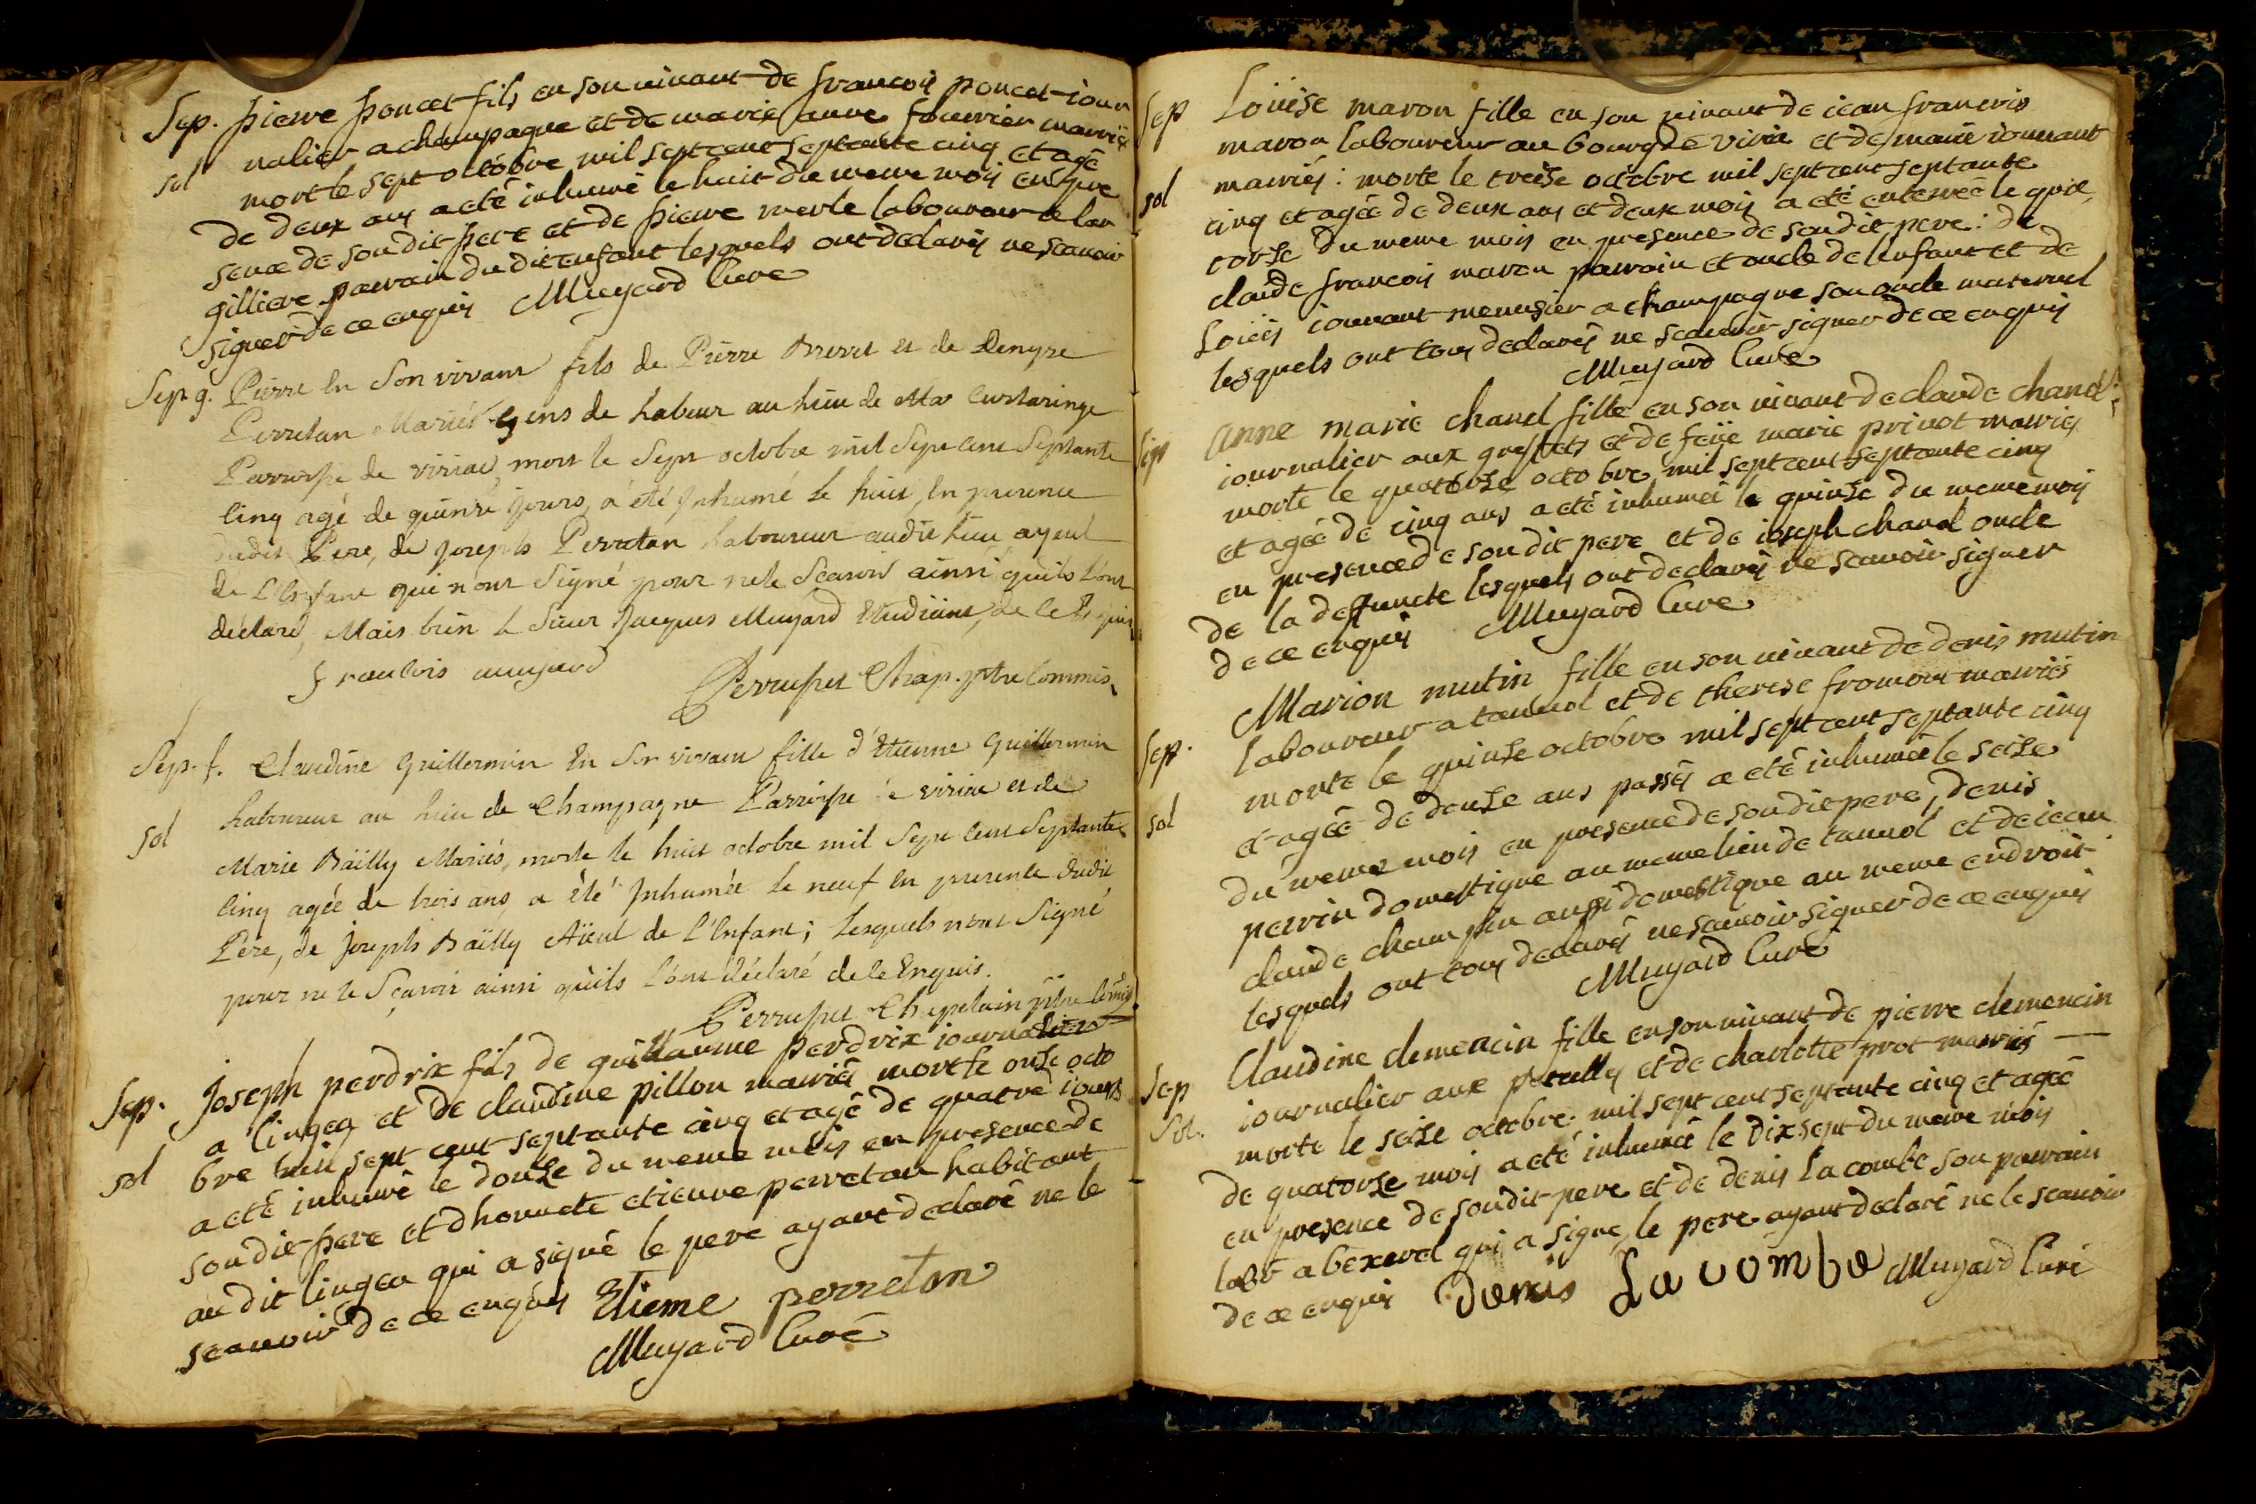 Sep. pierre poncet fils en son vivant de francois poncet iour
sol nalier a champagne et de marie anne fourrier mariés
mort le sept octobre mil sept cent septante cinq et agé
de deux ans a eté inhumé le huit du meme mois en pre
sence de son dit pere et de pierre merle laboureur a lar
gilliere parrain du dit enfant lesquels ont declarés ne scauoir
signer de ce enquis Muyard Curé
Sep. g. Pierre En Son vivant fils de Pierre et de Denyse
Perretan Mariés gens de Labeur au Lieu de
Parroisse de viriac, mort le Sept octobre mil Sept Cent Septante
Cinq agé de quinze jours, a été Inhumé le huit, En presence
dudit Pere, de Joseph Perretan Laboureur audit Lieu ayeul
de L'Enfant qui n'ont Signé pour ne le Scavoir ainsi quils L'ont
déclaré, Mais bien le Sieur Jacques Muyard Etudiant, de Ce Enquis
francois muyard Chap. ptre Commis.
Sep. f. Claudine Guillermin En Son vivant fille d'Etienne Guillermin
sol Laboureur au Lieu de Champagne Parroisse de viriac et de
Marie Bailly Mariés, morte le huit octobre mil Sept Cent Septante
Cinq agée de trois ans, a été Inhumée le neuf En presence dudit
Pere, de Joseph Bailly Aïeul de L'Enfant; Lesquels n'ont Signé
pour ne le Sçavoir ainsi quils L'ont déclaré de Ce Enquis.
Chapelain ptre Comis.
Sep. Joseph perdrix fils de guillaume perdrix iournalier
a lingea et de claudine pillon mariés mort le onse octo
sol bre mil sept cent septante cinq et agé de quatre iours
a eté inhumé le douse du meme mois en presence de
son dit pere et d honnete etienne perretan habitant
au dit lingea qui a signé le pere ayant declaré ne le
scauoir de ce enquis Etieme perretan
Muyard Curé
Sep Loüise maron fille en son vivant de iean francois
maron laboureur au bourg de viria et de marie iouuant
sol mariés: morte le treise octobre mil sept cent septante
cinq et agée de deux ans et deux mois a eté enterrée le qua
torse du meme mois en presence de son dit pere: de
claude francois maron parrain et oncle de lenfant et de
Loüis iouuant menusier a champagne son oncle maternel
lesquels ont tous declarés ne scauoir signer de ce enquis
Muyard Curé
Sep anne marie chanel fille en son vivant de claude chanel
iournalier aux et de feüe marie priuot mariés
morte le quatorse octobre mil sept cent septante cinq
et agée de cinq ans a eté inhumée le quinse du meme mois
en presence de son dit pere et de ioseph chanel oncle
de la deffuncte lesquels ont declarés ne scauoir signer
de ce enquis Muyard Curé
Marion mutin fille en son vivant de denis mutin
Sep. laboureur a tanuol et de therese fromont mariés
morte le quinse octobre mil sept cent septante cinq
sol et agée de douse ans passés a eté inhumée le seise
du meme mois en presence de son dit pere, denis
perrin domestique au meme lieu de tanuol et de iean
claude aussi domestique au meme endroit
lesquels ont tous declarés ne scauoir signer de ce enquis
Muyard Curé
Claudine clemencin fille en son vivant de pierre clemencin
Sep iournalier aux et de charlotte prot mariés
Sol. morte le seise octobre mil sept cent septante cinq et agée
de quatorse mois a eté inhumée le dix sept du meme mois
en presence de son dit pere et de denis Lacombe son parrain
lab.r a bexerel qui a signé, le pere ayant declaré ne le scauoir
de ce enquis Denis Lacombe Muyard Curé